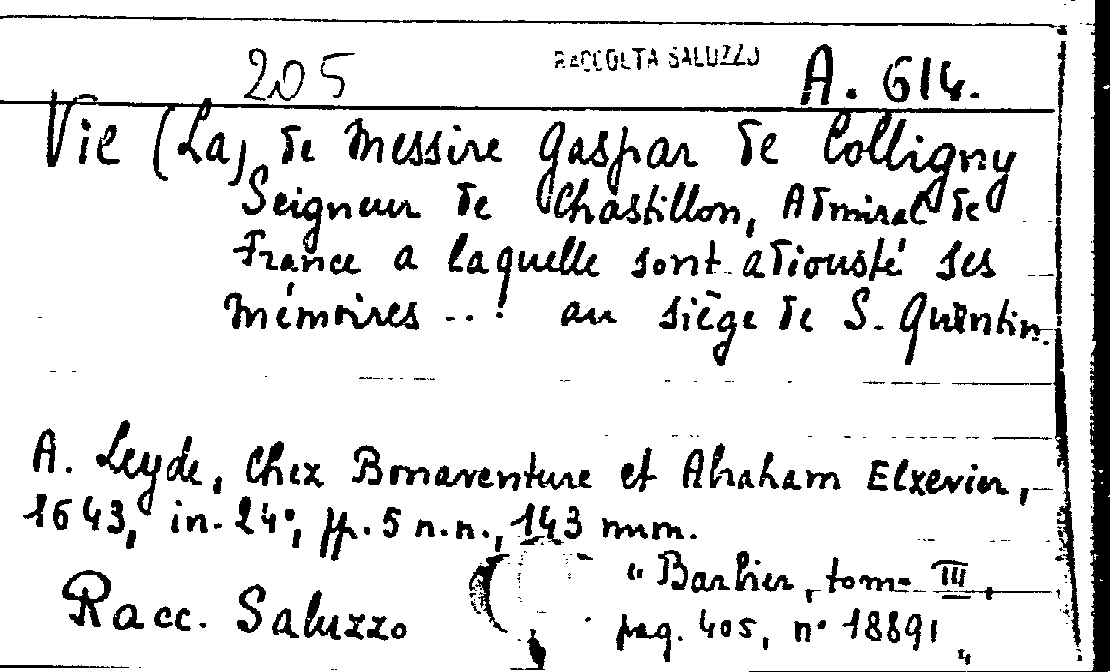 205 RACCOLTA SALUZZO A. 614.
Vie (La) de Messire Gaspar de Colligny
Seigneur de Chastillon, Admiral de
France a laquelle sont adiousté ses
mémoires ... au siège de S. Quentin.
A. Leyde, Chez Bonaventure et Abraham Elzevier,
1643, in-24°, pp. 5 n.n., 143 num.
Racc. Saluzzo
"Barbier, tom= III,
pag. 405, n° 18891„